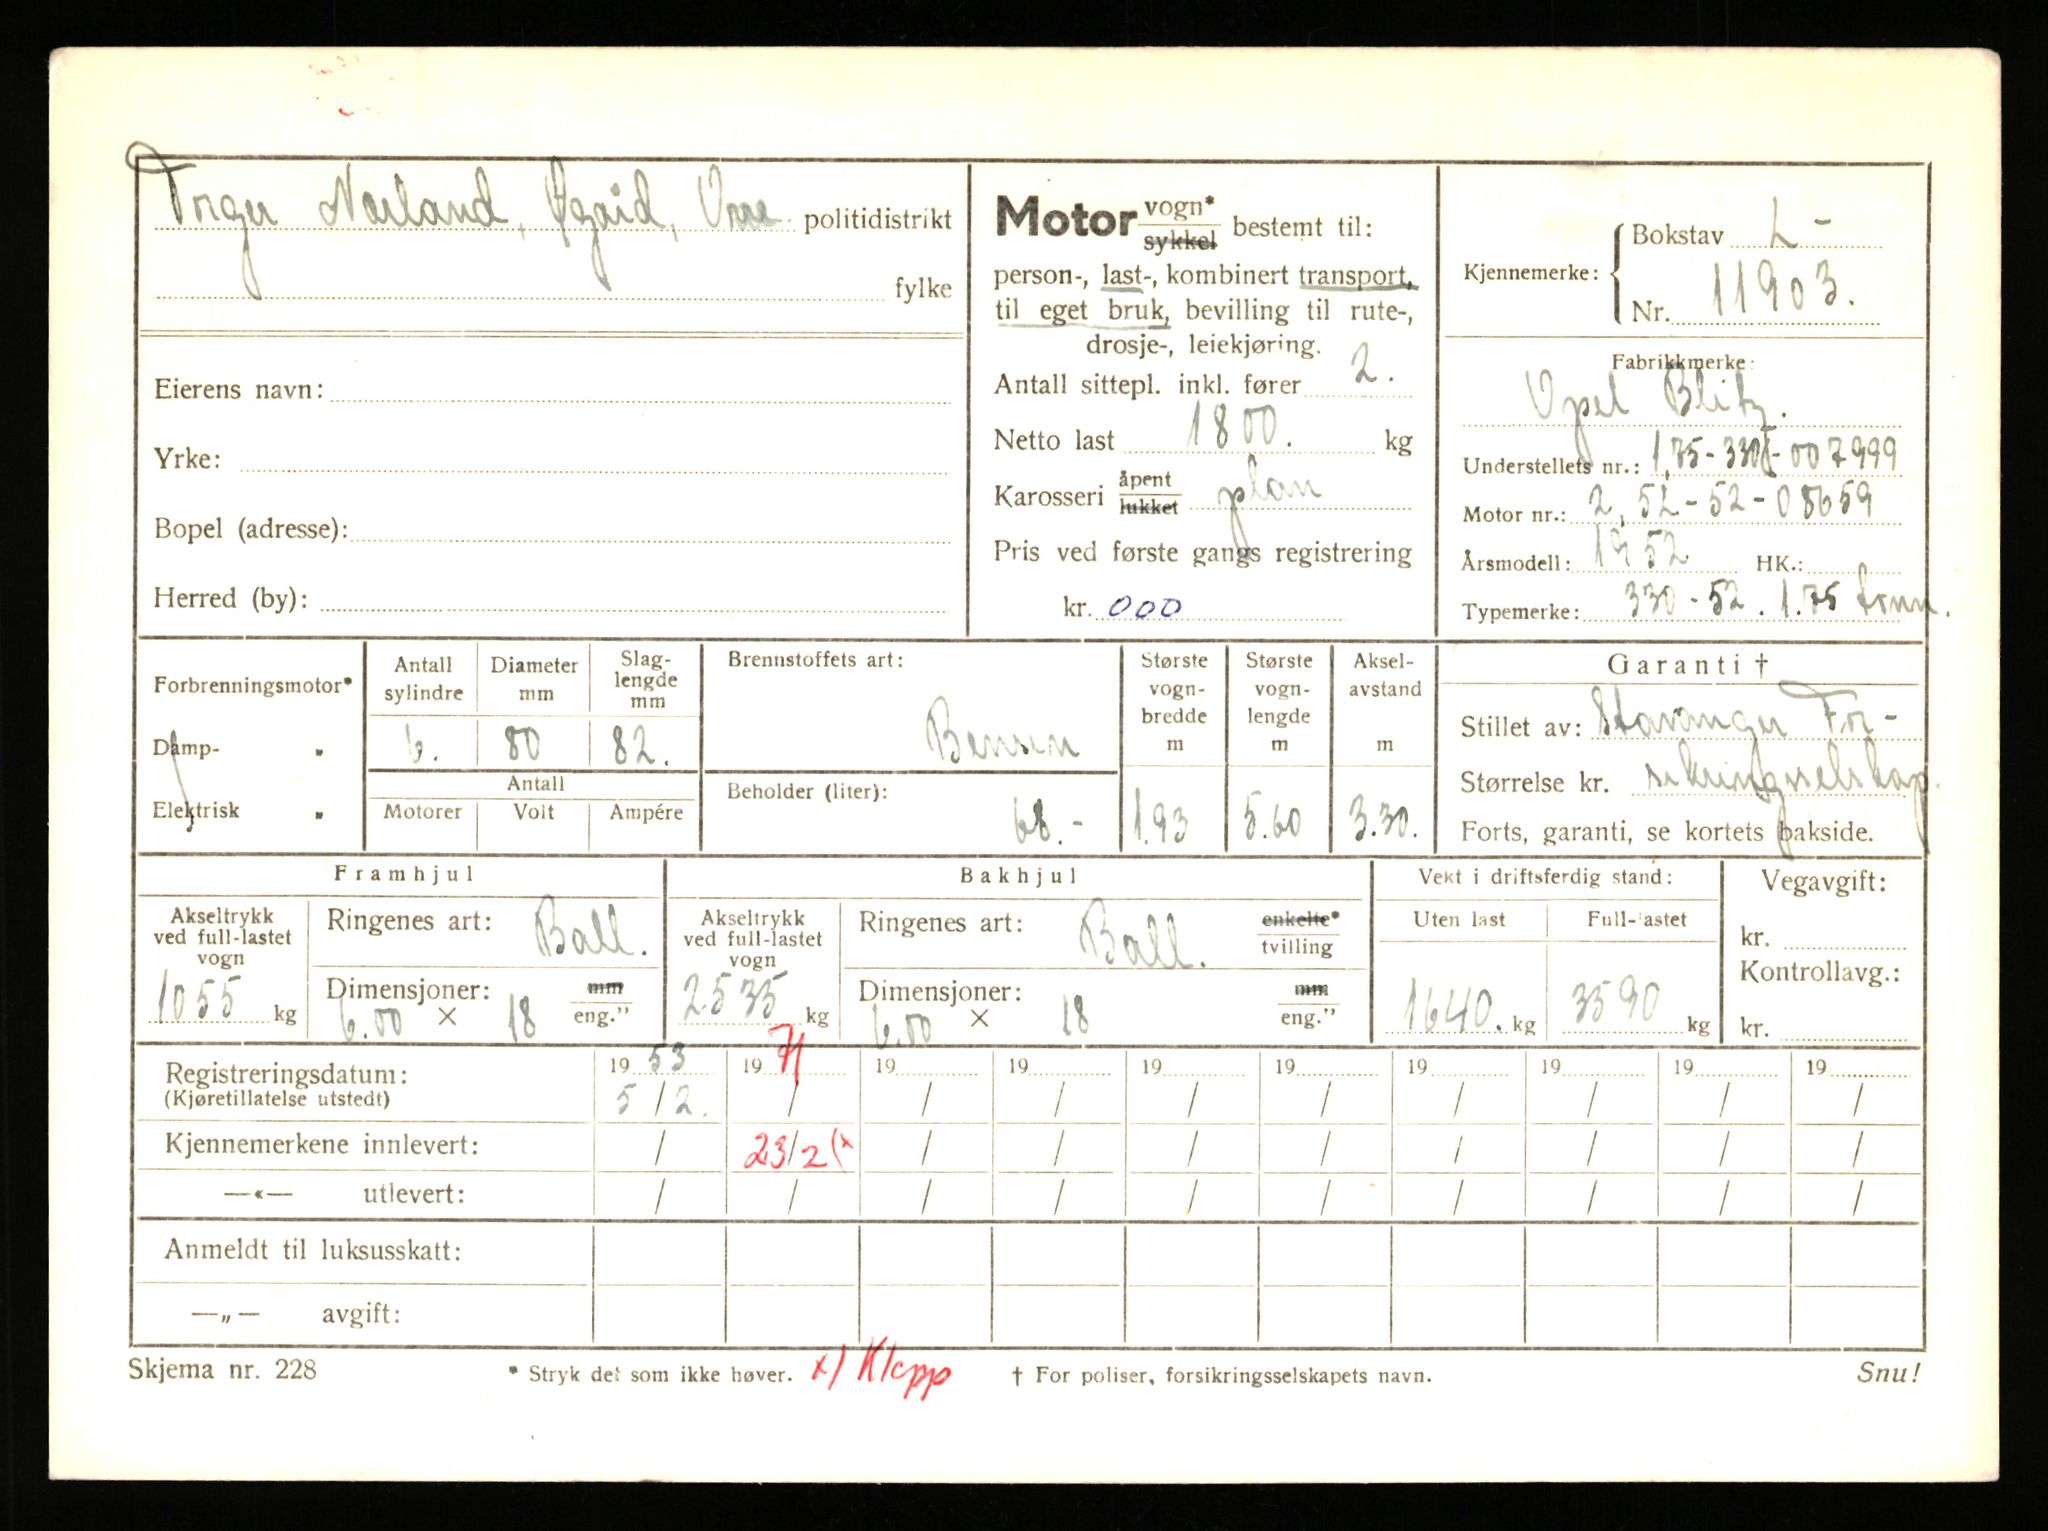 Torger Nærland, Øgård, Orre politidistrikt
fylke
Eierens navn:
Yrke:
Bopel (adresse):
Herred (by):
Motor vogn* / sykkel bestemt til:
person-, last-, kombinert transport,
til eget bruk, bevilling til rute-,
drosje-, leiekjøring.
Antall sittepl. inkl. fører 2.
Netto last 1800. kg
Karosseri åpent / lukket plan
Pris ved første gangs registrering
kr. 000
Kjennemerke: Bokstav L-
Nr. 11903.
Fabrikkmerke:
Opel Blitz.
Understellets nr.: 1,75-330J-007999
Motor nr.: 2,52-52-08659
Årsmodell: 1952 HK.:
Typemerke: 330-52. 1.75 tonn.
Forbrenningsmotor*
Damp- „
Elektrisk „
Antall sylindre 6.
Diameter mm 80
Slag-lengde mm 82.
Antall
Motorer Volt Ampére
Brennstoffets art:
Bensin
Beholder (liter):
68.-
Største vogn-bredde m 1.93
Største vogn-lengde m 5.60
Aksel-avstand m 3.30.
Garanti †
Stillet av: Stavanger For-
Størrelse kr. sikringsselskap.
Forts, garanti, se kortets bakside.
Framhjul
Akseltrykk ved full-lastet vogn 1055 kg
Ringenes art: Ball.
Dimensjoner: 6.00 × 18 mm / eng."
Bakhjul
Akseltrykk ved full-lastet vogn 2535 kg
Ringenes art: Ball. enkelte* / tvilling
Dimensjoner: 6.00 × 18 mm / eng."
Vekt i driftsferdig stand:
Uten last 1640. kg
Full-lastet 3590 kg
Vegavgift:
kr.
Kontrollavg.:
kr.
Registreringsdatum: 19 53 19 71 19 19 19 19 19 19 19 19
(Kjøretillatelse utstedt) 5/2. / / / / / / / / /
Kjennemerkene innlevert: / 23/2 (x / / / / / / / /
—«— utlevert: / / / / / / / / / /
Anmeldt til luksusskatt:
—„— avgift:
Skjema nr. 228 * Stryk det som ikke høver. x) Klepp † For poliser, forsikringsselskapets navn. Snu!